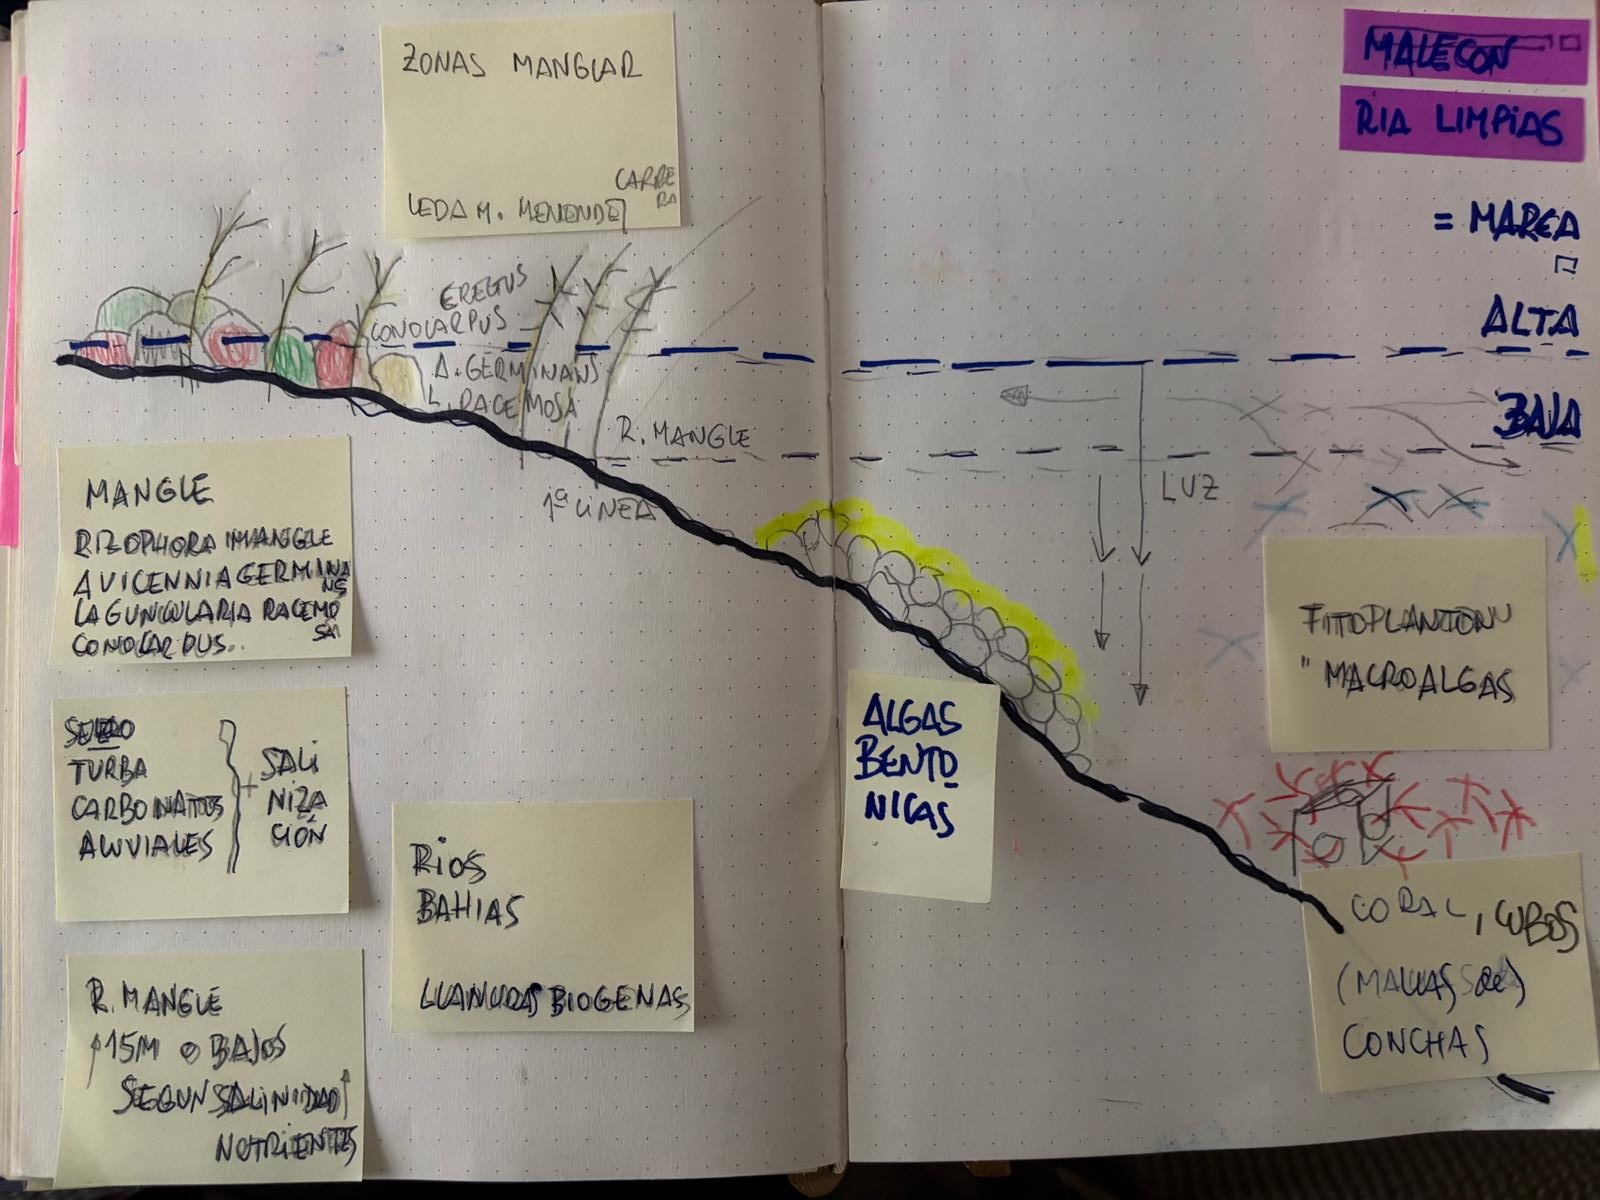 ZONAS MANGLAR
CARRE
RA
LEDA M. MENENDEZ
MALECON
RIA LIMPIAS
= MAREA
ALTA
BAJA
EREGTUS
CONOCARPUS
A. GERMINANS
L. RACEMOSA
R. MANGLE
1ª LINEA
LUZ
MANGLE
RIZOPHORA MANGLE
AVICENNIA GERMINA
NS
LAGUNCULARIA RACEMO
SA
CONOCARPUS..
SUELO
TURBA
CARBONATOS
ALUVIALES
+ SALI
NIZA
CIÓN
R. MANGLE
↑15M o BAJOS
SEGUN SALINIDAD↑
NUTRIENTES
RIOS
BAHIAS
LLANURAS BIOGENAS
ALGAS
BENTO
NICAS
FITOPLANTON
" MACROALGAS
CORAL, CUBOS
(MALLAS
CONCHAS